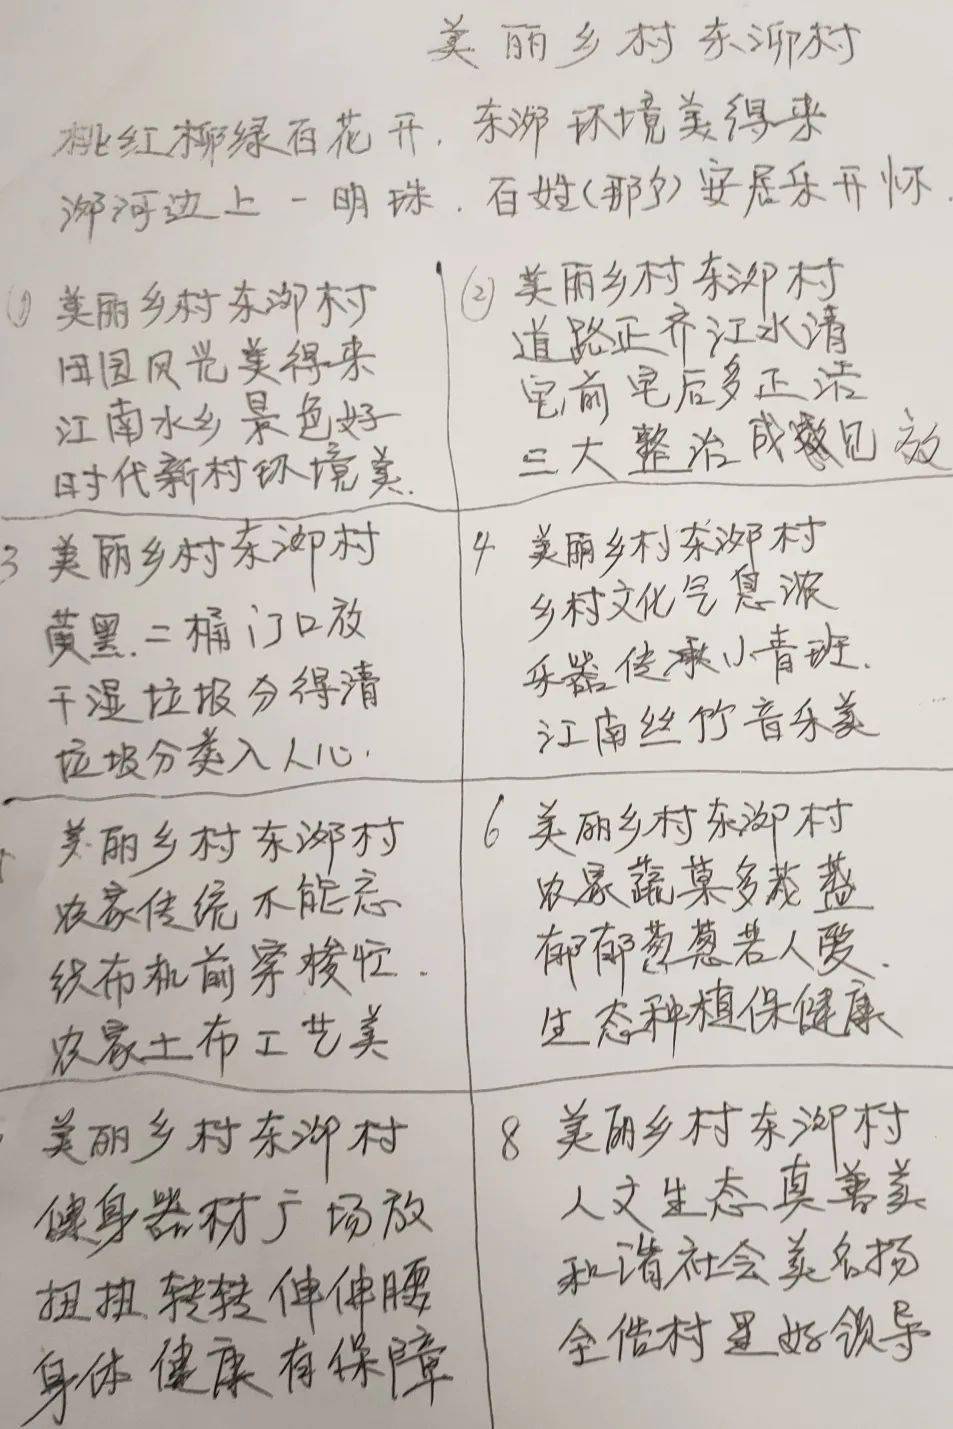 美丽乡村东泖村
桃红柳绿百花开.东泖环境美得来
泖河边上一明珠.百姓(那)安居乐开怀.
① 美丽乡村东泖村
田园风光美得来
江南水乡景色好
时代新村环境美.
② 美丽乡村东泖村
道路正齐江水清
宅前宅后多正洁
三大整治成见效
3 美丽乡村东泖村
黄黑.二桶门口放
干湿垃圾分得清
垃圾分类入人心.
4 美丽乡村东泖村
乡村文化气息浓
乐器传承小青班.
江南丝竹音乐美
美丽乡村东泖村
农家传统不能忘
织布机前穿梭忙.
农家土布工艺美
6 美丽乡村东泖村
农家蔬菜多茂盛
郁郁葱葱若人爱.
生态种植保健康
美丽乡村东泖村
健身器材广场放
扭扭转转伸伸腰
身体健康有保障
8 美丽乡村东泖村
人文生态真善美
和谐社会美名扬
全村好领导